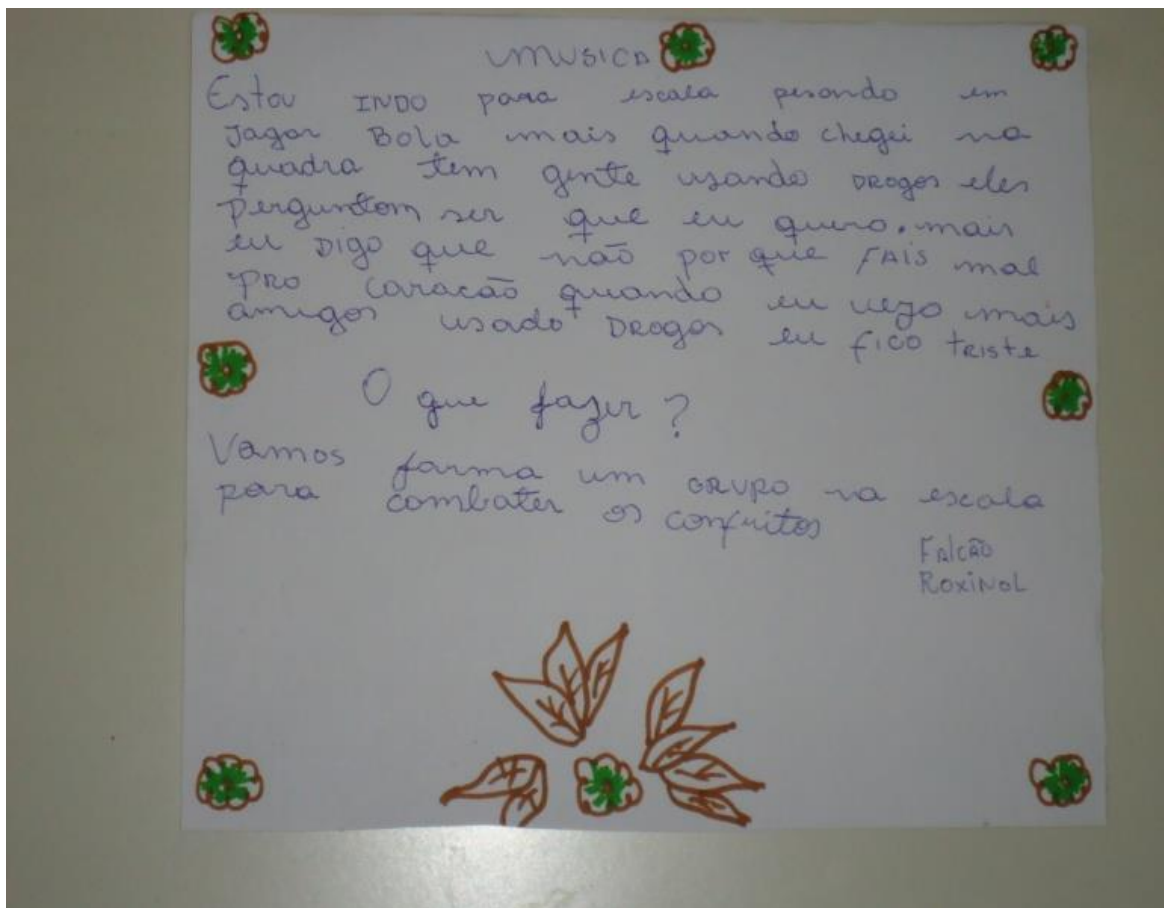 MUSICA
Estou INDO para escala pesando em
Jagar Bola mais quando chegei na
quadra tem gente usando DROGOS eles
perguntom ser que eu quero. mais
eu DIGO que não por que FAIS mal
PRO caracão quando eu vejo mais
amigos usado DROGOS eu fico triste
O que fazer?
Vamos farma um GRUPO na escala
para combater os confritos
FAlCÃO
ROXiNOL